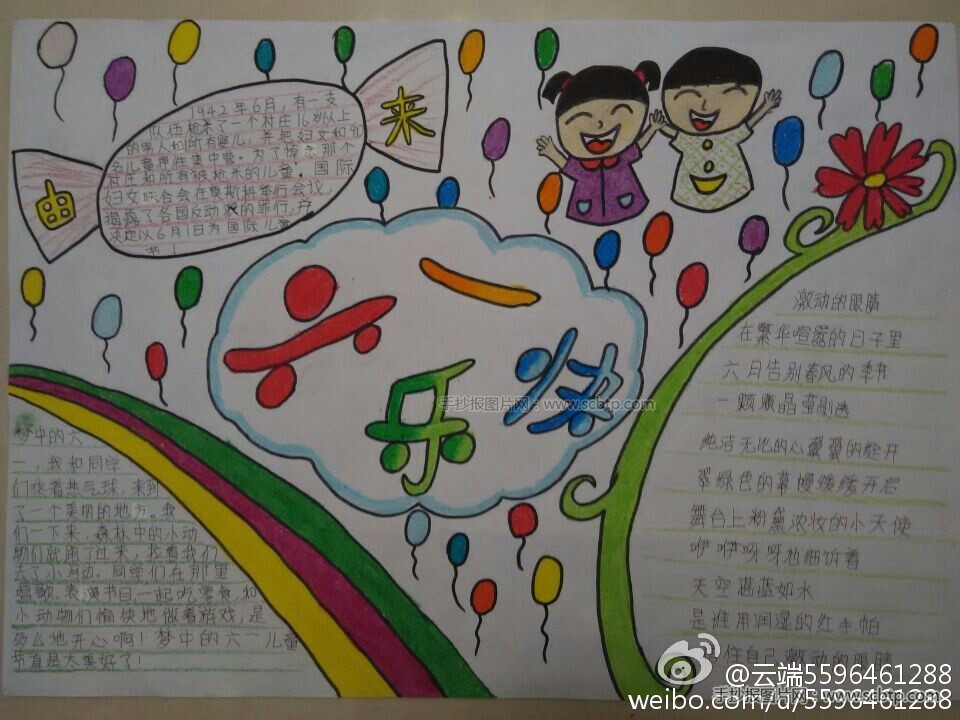 由
来
1942年6月,有一支
队伍枪杀了一个村庄16岁以上
的男人和所有婴儿,并把妇女和90
多名儿童押往集中营。为了悼念那个
村庄和所有被枪杀的儿童。国际
妇女联合会在莫斯科举行会议,
揭露了各国反动派的罪行,并
决定以6月1日为国际儿童
节!
六一
快乐
手抄报图片网 - www.scbtp.com
梦中的六
一,我和同学
们乘着热气球,来到
了一个美丽的地方,我
们一下来,森林中的小动
物们就跑了过来,拉着我们
去了小河边。同学们在那里
唱歌,表演节目一起吃零食,和
小动物们愉快地做着游戏,是
多么地开心啊!梦中的六一儿童
节真是太美好了!
激动的眼睛
在繁华喧嚣的日子里
六月告别春风的季节
一颗颗晶莹剔透
纯洁无比的心翼翼的绽开
翠绿色的幕幔缓缓开启
舞台上粉黛浓妆的小天使
咿咿呀呀
天空湛蓝如水
是谁用润湿的红手帕
住自己激动的眼睛
@云端5596461288
手抄报图片网 - www.scbtp.com
weibo.com/u/5596461288